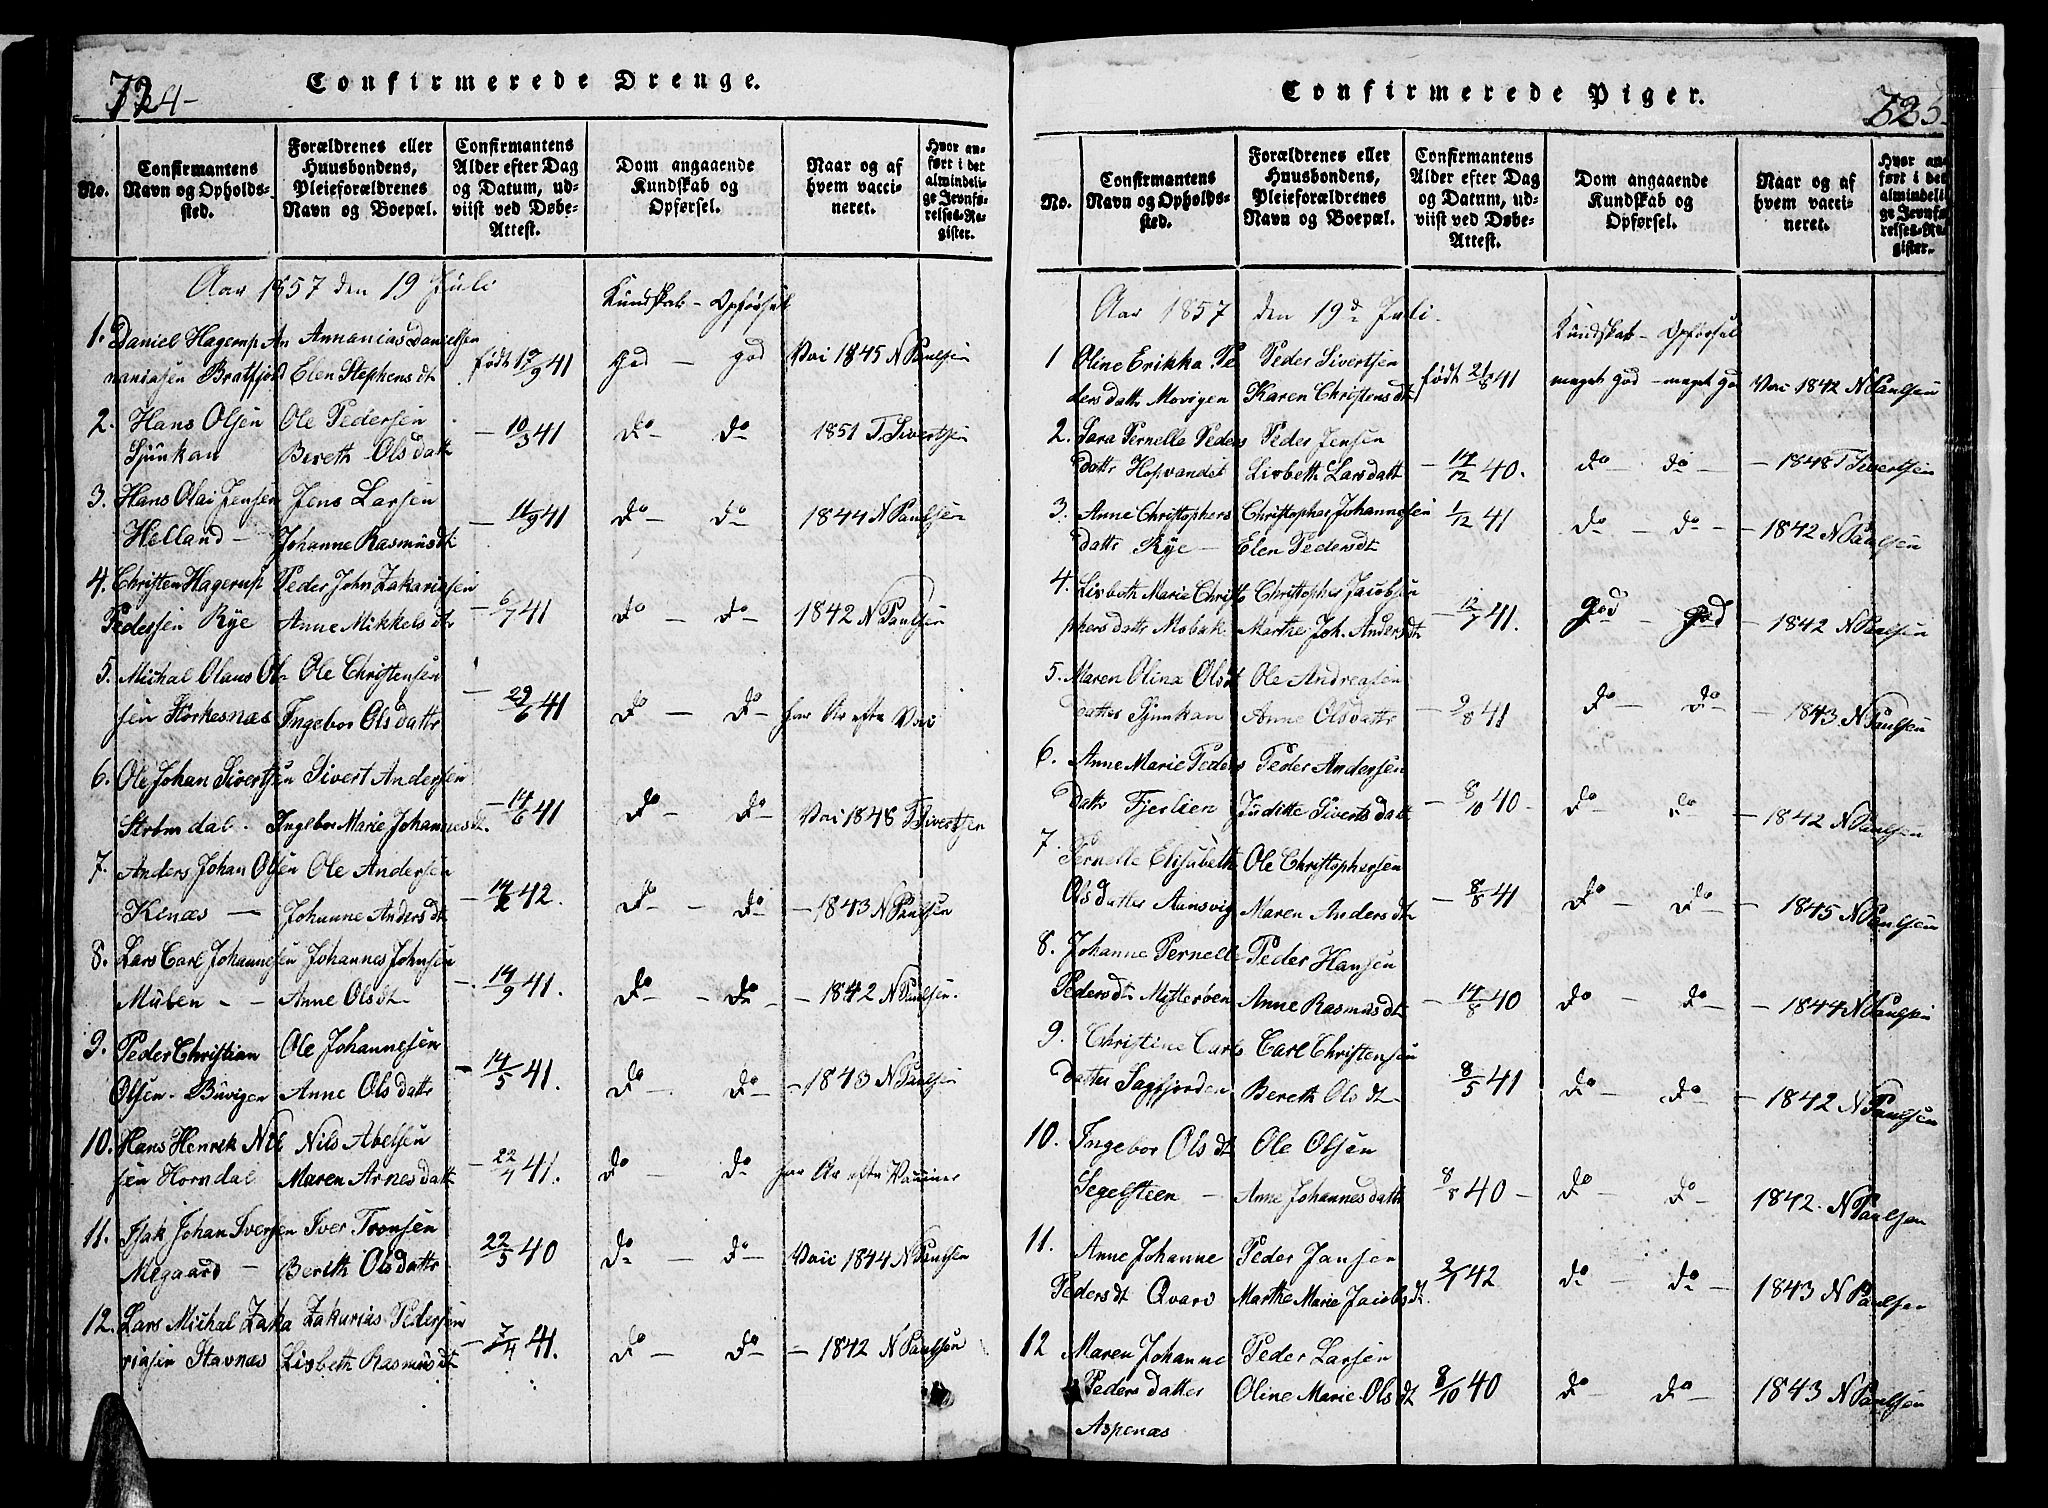 724
Confirmerede Drenge.
No.
Confirmantens Navn og Opholds-sted.
Forældrenes eller Huusbondens, Pleieforældrenes Navn og Boepæl.
Confirmantens Alder efter Dag og Datum, ud-viist ved Døbe-Attest.
Dom angaaende Kundskab og Opførsel.
Naar og af hvem vacci-neret.
Hvor an-ført i det almindeli-ge Jevnfø-relses-Re-gister.
Aar 1857 den 19 Juli
Kundskab - Opførsel
1. Daniel Hagerup An Annanias Danielsen
naniasen Bratfjord Elen Stephens dt født 19/9 41 god - god Vac 1845 N Paulsen
2. Hans Olsen Ole Pedersen
Sjunkan Bereth Olsdatt - 10/3 41 do - do 1851 T Sivertsen
3. Hans Olai Jensen Jens Larsen
Helland - Johanne Rasmusdt - 11/9 41 do - do 1844 N Paulsen
4. Christen Hagerup Peder John Zakariasen
Pedersen Rye Anne Mikkelsdtr - 6/7 41 do - do 1842 N Paulsen
5. Michal Olaus Ol- Ole Christensen
sen Horkesnæs Ingebor Olsdattr - 29/6 41 do - do har Ar efter Vac
6. Ole Johan Sivertsen Sivert Andersen
Strømdal. Ingebor Marie Johannesdt. - 14/6 41 do do Vac 1848 T Sivertsen
7. Anders Johan Olsen Ole Andersen
Kinæs - Johanne Andersdt - 14/2 42. do - do - 1843 N Paulsen
8. Lars Carl Johannesen Johannes Johnsen
Mulen - - Anne Olsdt - 14/9 41. do - do - 1842 N Paulsen.
9. Peder Christian Ole Johannesen
Olsen. Buvigen Anne Olsdattr - 14/5 41. do - do - 1843 N Paulsen
10. Hans Henrik Nil Nils Abelsen
sen Horndal Maren Arnesdatt - 22/4 41. do - do har Ar efter Vacciner
11. Isak Johan Iversen Iver Tronsen
Megaard - Bereth Olsdattr 22/5 40 do - do - Vacc 1844 N Paulsen
12. Lars Michal Zaka Zakarias Pedersen
riasen Stavnæs Lisbeth Rasmusdt - 7/4 41. do - do - 1842 N Paulsen
725
Confirmerede Piger.
No.
Confirmantens Navn og Opholds-sted.
Forældrenes eller Huusbondens, Pleieforældrenes Navn og Boepæl.
Confirmantens Alder efter Dag og Datum, ud-viist ved Døbe-Attest.
Dom angaaende Kundskab og Opførsel.
Naar og af hvem vacci-neret.
Hvor an-ført i det almindeli-ge Jevnfø-relses-Re-gister.
Aar 1857 den 19de Juli.
Kundskab - Opførsel
1 Oline Erikka Pe Peder Sivertsen
dersdattr Movigen Karen Christensdt født 21/8 41 maget god - maget god Vac 1842 N Paulsen
2. Sara Pernella Peders Peder Jensen
dattr Hopvandet Lisbeth Larsdatt - 14/12 40. do - do - 1848 T Sivertsen
3. Anne Christophers Christopher Johannesen
dattr Rye - Elen Pedersdt 1/12 41 do - do - 1842 N Paulsen
4. Lisbeth Marie Christo Christopher Jacobsen
phersdattr Mobak Marthe Joh. Andersdt - 12/7 41. god - god - 1842 N Paulsen
5. Maren Olina Olsdt Ole Andreasen
datter Sjunkan Anne Olsdattr - 9/8 41 do - do - 1843 N Paulsen
6. Anne Marie Peders Peder Andersen
dattr Fjerlien Juditte Sivertsdatt - 8/10 40 - do - do - 1842 N Paulsen
7. Pernelle Elisabeth Ole Christophersen
Olsdatter Aunsvig Maren Andersdt - 8/8 41 do - do - 1845 N Paulsen
8. Johanne Pernelle Peder Hansen
Pedersdt Mytterøen Anne Rasmusdt - 14/8 40 do - do - 1844 N Paulsen
9. Christine Carls Carl Christensen
datter Sagfjorden Bereth Olsdt 8/5 41 do - do - 1842 N Paulsen
10. Ingebor Olsdt Ole Olsen
Segelsteen - Anne Johannesdattr 8/8 40 - do - do - 1842. N Paulsen
11. Anne Johanne Peder Jansen
Pedersdt Qvarv Marthe Marie Jacobsdt. 2/1 42 do - do - 1843 N Paulsen
12 Maren Johanne Peder Larsen
Pedersdatter Oline Marie Olsdt 8/10 40 do - do - 1843 N Paulsen
Aspenæs